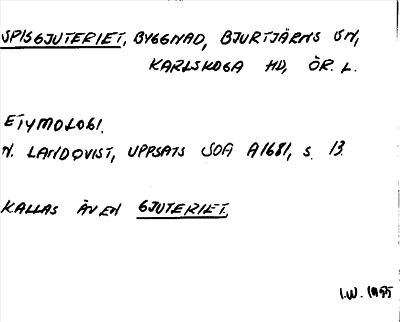 SPISGJUTERIET, BYGGNAD, BJURTJÄRNS SN,
KARLSKOGA HD, ÖR. L.
ETYMOLOGI.
N. LANDQVIST, UPPSATS SOA A1681, S. 13.
KALLAS ÄVEN GJUTERIET.
I.W. 1985